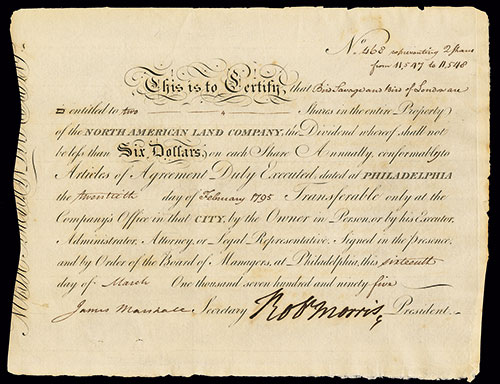 No. 468 representing 2 Shares
from 11,547 to 11,548
This is to Certify, that Bird Savage and Bird of London are
entitled to two Shares in the entire Property
of the NORTH AMERICAN LAND COMPANY, the Dividend whereof shall not
be less than Six Dollars, on each Share Annually, conformably to
Articles of Agreement Duly Executed, dated at PHILADELPHIA
the twentieth day of February 1795 Transferable only at the
Company's Office in that CITY, by the Owner in Person, or by his Executor,
Administrator, Attorney, or Legal Representative. Signed in the presence,
and by Order of the Board of Managers, at Philadelphia, this sixteenth
day of March One thousand seven hundred and ninety five
James Marshall Secretary Rob Morris President.